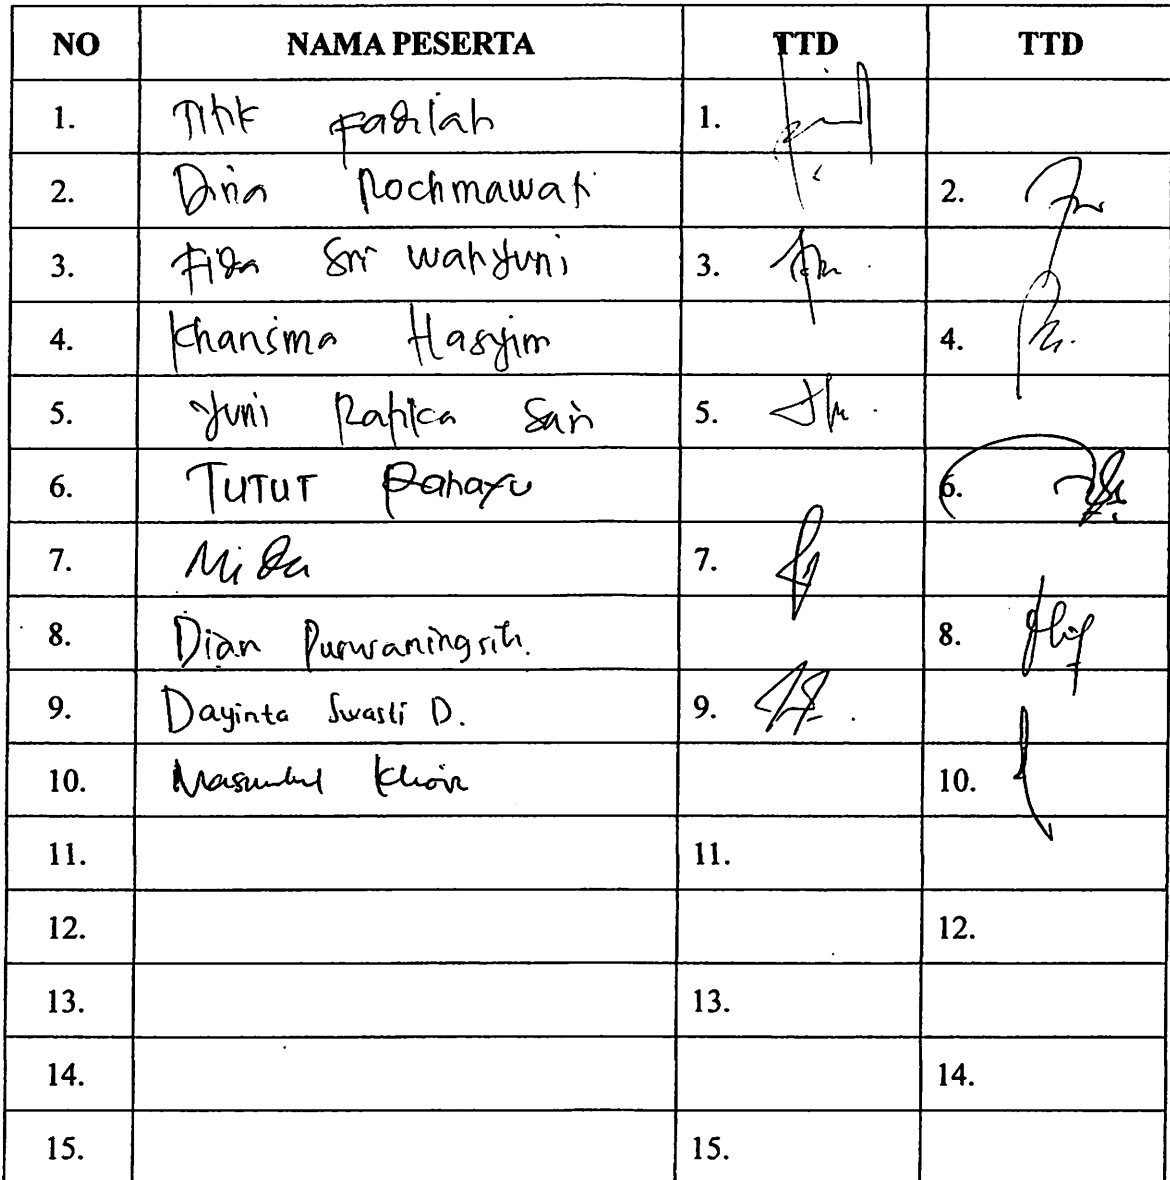 NO NAMA PESERTA TTD TTD
1. Titik Fadilah 1.
2. Dina Rochmawati 2.
3. Fida Sri Wahyuni 3.
4. Khansima Hasyim 4.
5. Yuni Rafika Sari 5.
6. TUTUT Rahayu 6.
7. Mida 7.
8. Dian Purwaningsih. 8.
9. Dayinta Swasti D. 9.
10. Khoir 10.
11. 11.
12. 12.
13. 13.
14. 14.
15. 15.